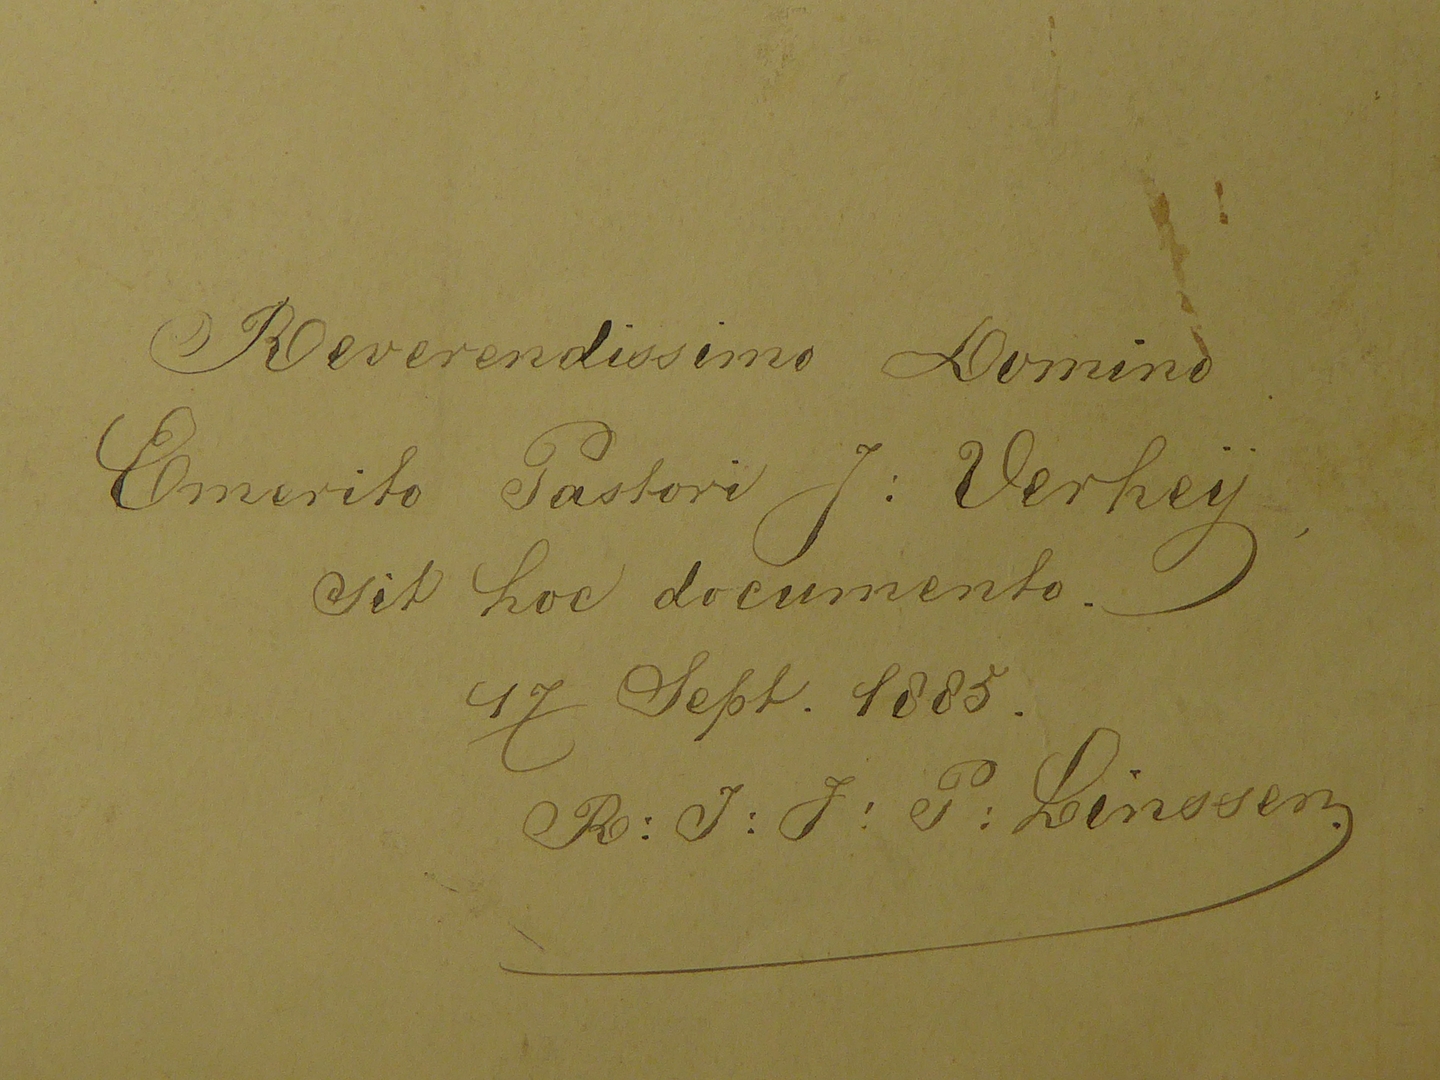 Reverendissimo Domino
Emerito Pastori J: Verheÿ,
sit hoc documento.
17 Sept. 1885.
R: J: J: P: Linssen.